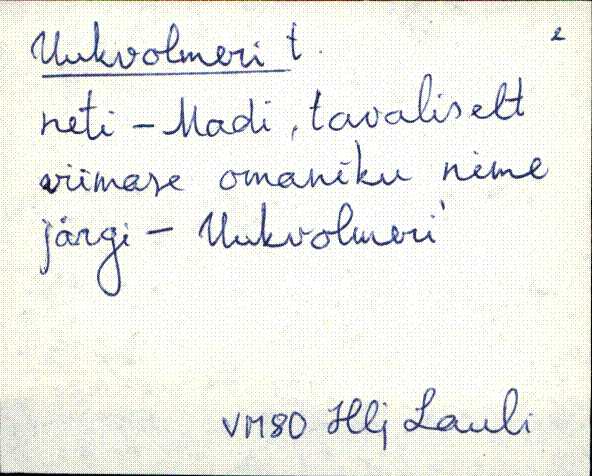 Uukvolmeri t. 2
neti – Madi, tavaliselt
viimase omaniku nime
järgi – Uukvolmeri
VM80 Hlj Lauli